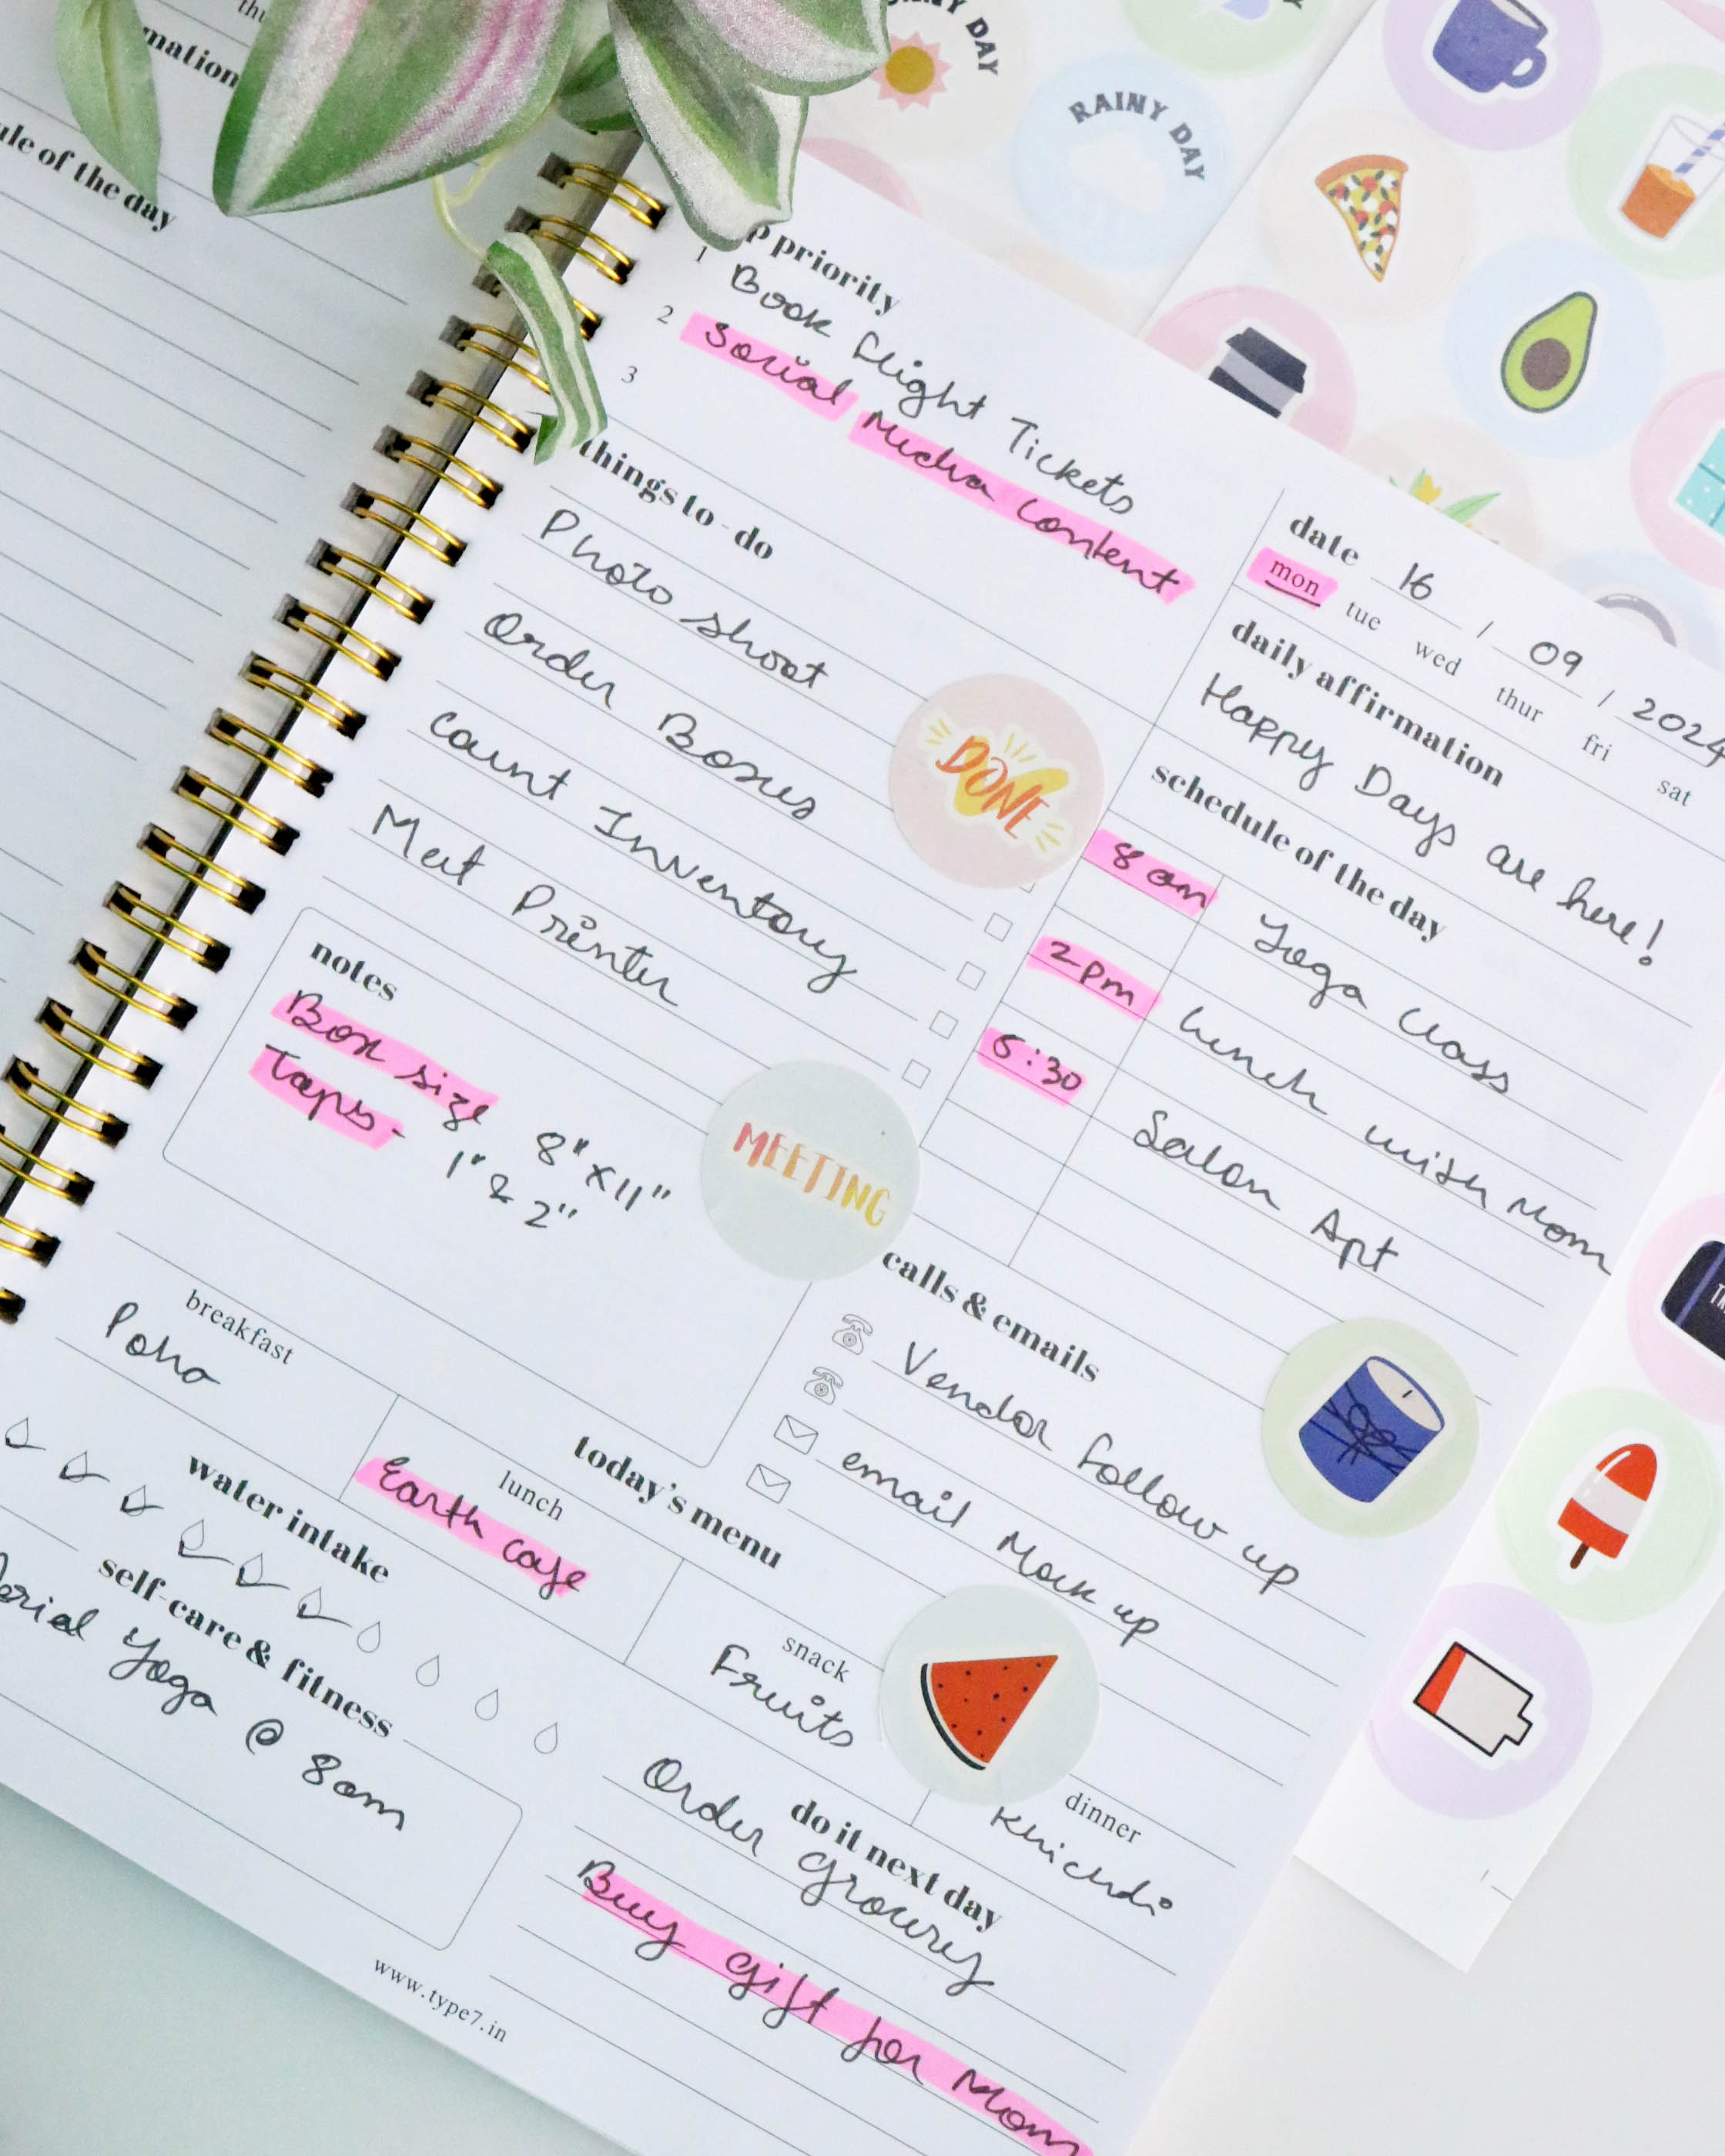 thu
mation
ule of the day
NNY DAY
RAINY DAY
p priority
1 Book flight Tickets
2 Social Media Content
3
things to-do
Photo shoot
Order Boxes
Count Inventory
Meet Printer
DONE
date 16 / 09 / 2024
mon tue wed thur fri sat
daily affirmation
Happy Days are here!
schedule of the day
8 am Yoga Class
2 pm Lunch with Mom
5:30 Salon Apt
notes
Box size 8" x 11"
Tapes - 1" & 2"
MEETING
calls & emails
Vendor follow up
email Mock up
today's menu
breakfast
Poha
lunch
Earth cafe
snack
Fruits
dinner
Khichdi
water intake
self-care & fitness
Aerial Yoga @ 8am
do it next day
Order Grocery
Buy gift for Mom
www.type7.in